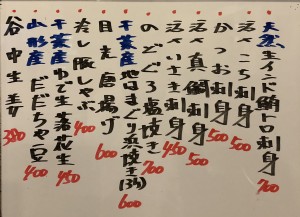 天然生インド鮪トロ刺身 700
活〆こち刺身 500
かつお刺身 500
活〆真鯛刺身 500
活〆いさき刺身 450
のどぐろ塩焼き 700
千葉産地はまぐり浜焼き(3ヶ) 600
目光唐揚げ 600
冷し豚しゃぶ 400
千葉産ゆで生落花生 450
山形産だだちゃ豆 400
谷中生姜 380